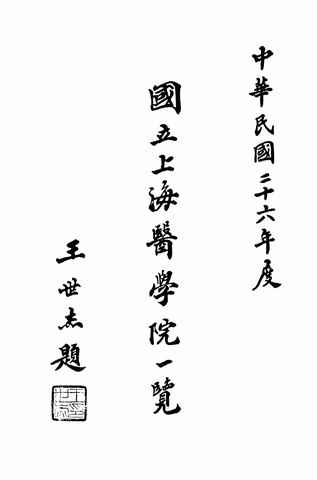 中華民國二十六年度
國立上海醫學院一覽
王世杰題